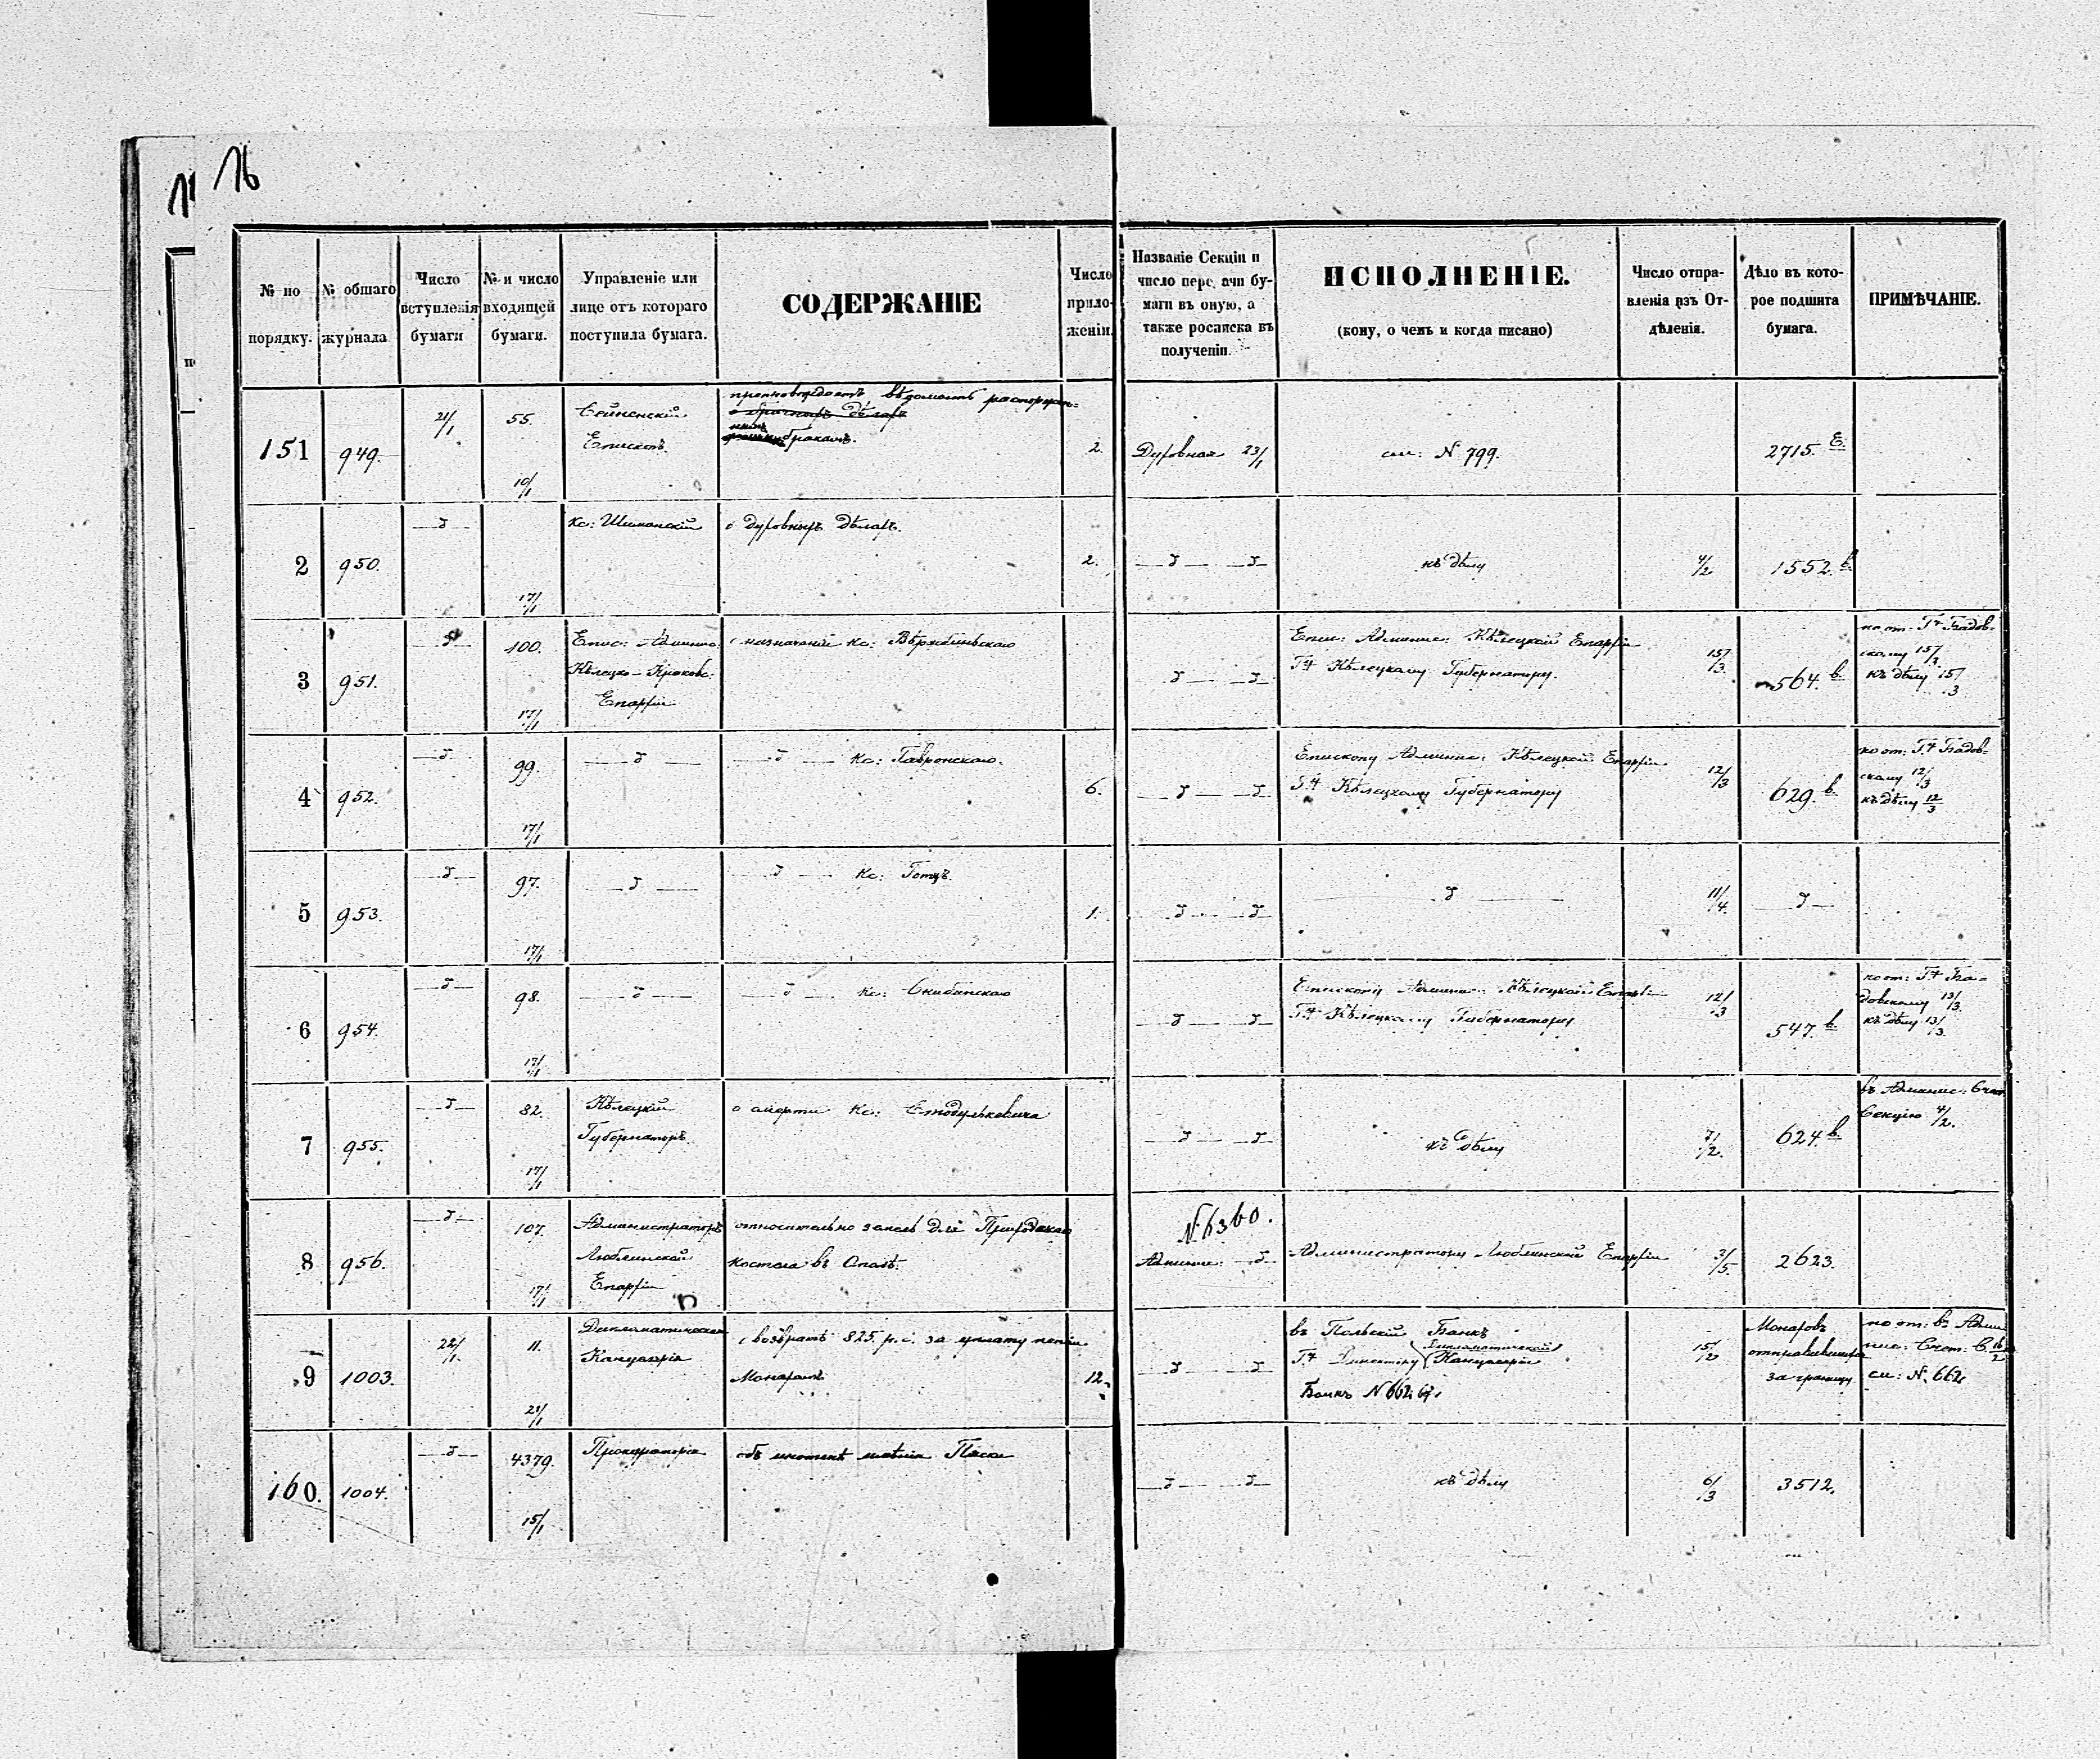 16
№ по порядку.
№ общаго журнала
Число вступленія бумаги
№ и число входящей бумаги.
Управленіе или лице отъ котораго поступила бумага.
СОДЕРЖАНІЕ
Число прило- женіи.
Названіе Секціи и число пере. ачи бу- маги въ оную, а также росписка въ полученіи.
ИСПОЛНЕНІЕ.
(кому, о чемъ и когда писано)
Число отпра- вленія изъ От- дѣленія.
Дѣло въ кото- рое подшита бумага.
ПРИМѢЧАНІЕ.
151 949. 21/1 55. 10/1
Сейненскій
Епископъ.
вѣдомость расторжен=
бракамъ.
2.
Духовная 23/1
см: N 799.
2715. Е.
2 950. —д— 17/1
Кс: Шиманскій
о духовныхъ дѣлахъ.
2.
—д— —д—
къ дѣлу
4/2
1552. в.
3 951. —д— 100. 17/1
Епис: Админис.
Кѣлецко-Краковс:
Епархіи
о назначеніи Кс:
—д— —д—
Епис: Админис: Кѣлецкой Епархіи
Г✝ Кѣлецкому Губернатору.
15/3
564. в.
по от. Г✝ Бадов-
скому 15/3
къ дѣлу 15/3
4 952. —д— 99. 17/1
—д—
—д— Кс: Гавронскаго.
6.
—д— —д—
Епископу Админис: Кѣлецкой Епархіи
Г✝ Кѣлецкому Губернатору
12/3
629. в.
по от: Г✝ Бадов-
скому 12/3
къ дѣлу 12/3
5 953. —д— 97. 17/1
—д—
—д— Кс: Готцъ.
1.
—д— —д—
—д—
11/4.
—д—
6 954. —д— 98. 17/1
—д—
—д— Кс: Скибинскаго
—д— —д—
Епископу Админис: Кѣлецкой Епархіи
Г✝ Кѣлецкому Губернатору
12/3
547. в.
по от: Г✝ Ба-
довскому 13/3.
къ дѣлу 13/3.
7 955. —д— 82. 17/1
Кѣлецкій
Губернаторъ.
о смерти Кс:
—д— —д—
къ дѣлу
7/2.
624. в.
въ Админис: Счет.
Секцію 4/2.
8 956. —д— 107. 17/1
Администраторъ
Люблинской
Епархіи
относительно земель для Приходскаго
костела въ Ополѣ.
N. 6360.
Админис: —д—
Администратору Люблинской Епархіи
3/5.
2623.
9 1003. 22/1. 11. 21/1
Дипломатическая
Канцелярія
о возвратѣ 825. р. с. за уплату пенсіи
Монахамъ
12.
—д— —д—
въ Польскій Банкъ
Г✝ Директору Дипломатической
Канцеляріи
Банкъ N 662
15/2
Монаховъ
отправившихся
за границу
по от: въ Адми
нис: Счет: С. 16/2
см: N. 662
160. 1004. —д— 4379. 15/1
Прокураторія
объ ипотекѣ имѣнія Пяски
—д— —д—
къ дѣлу
6/3
3512.